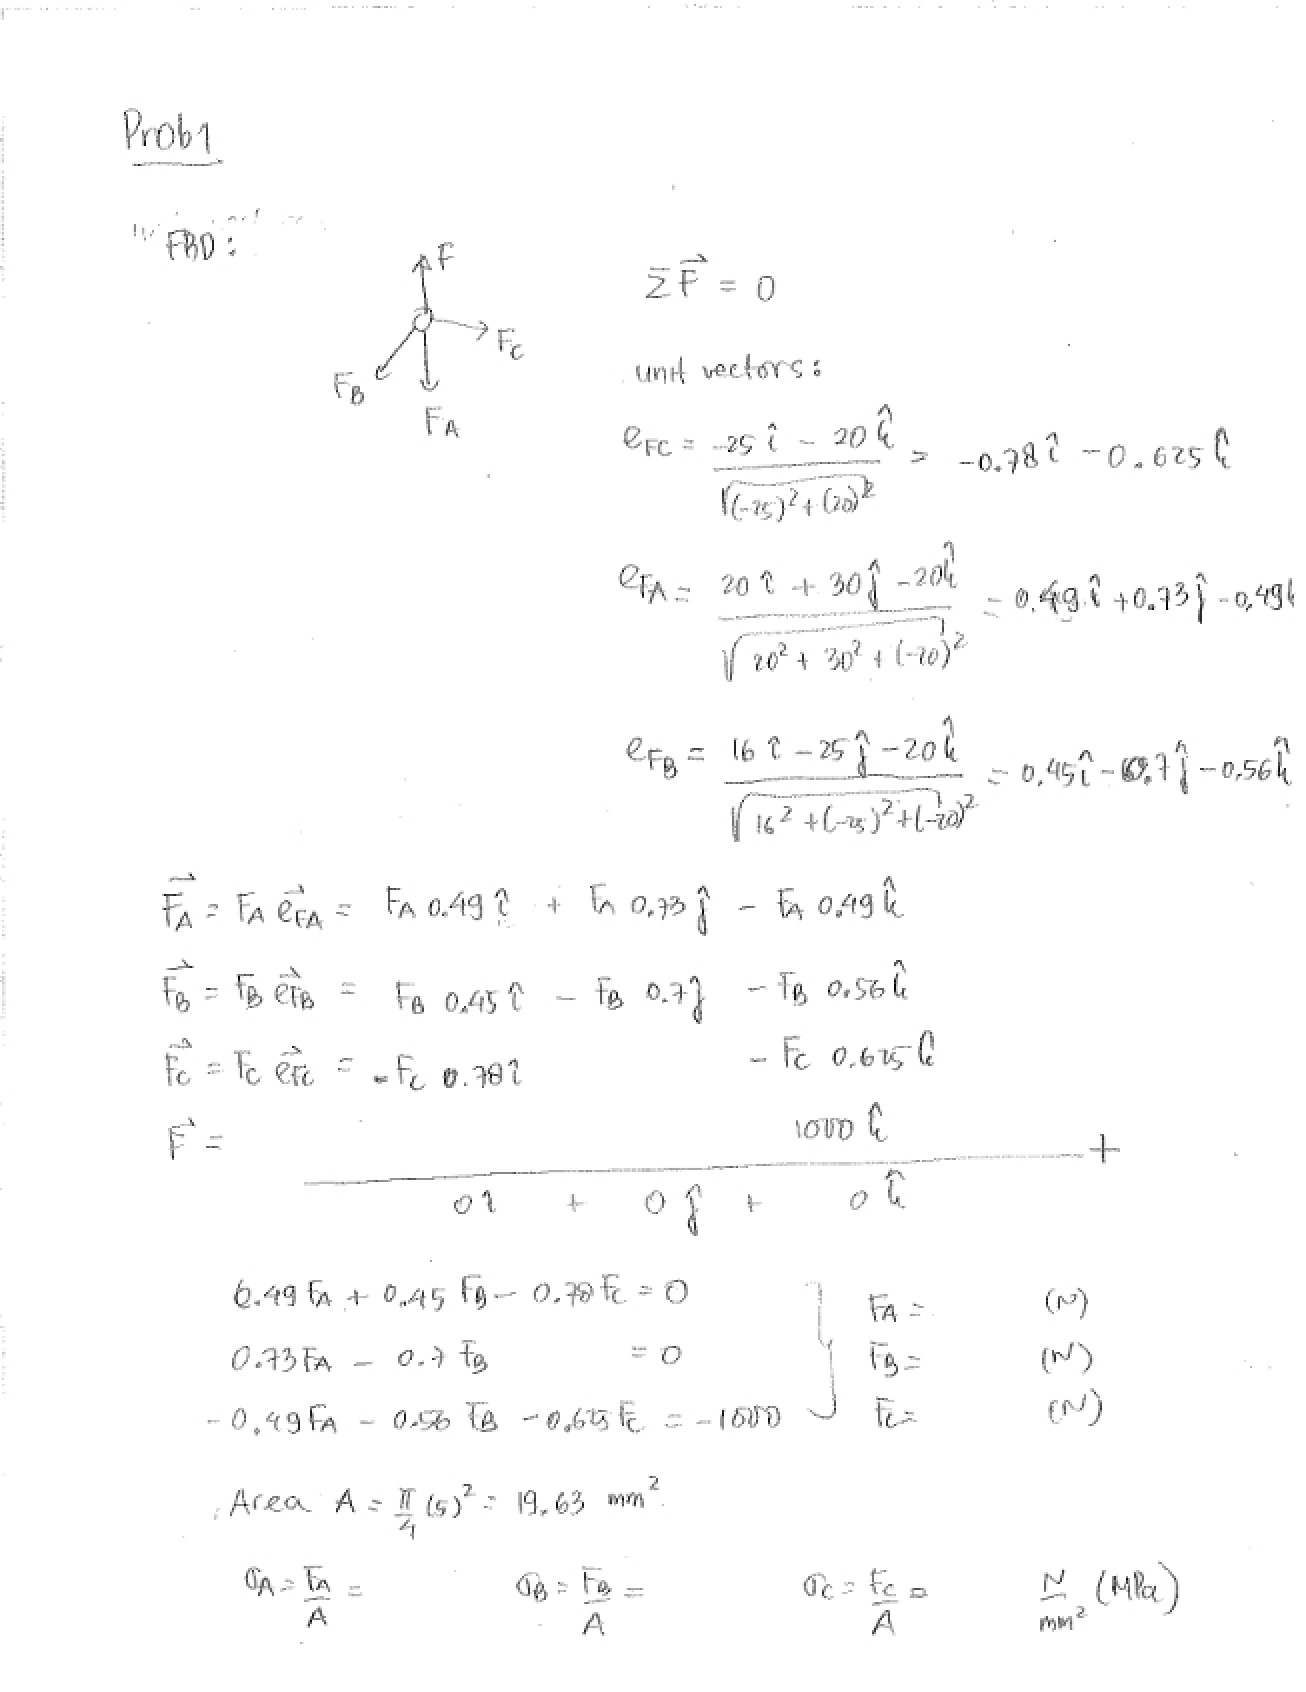 Prob1
FBD:
F
F_C
F_B
F_A
Σ F⃗ = 0
unit vectors:
e_FC = (-25 î - 20 k̂) / √((-25)² + (20)²) = -0.78 î - 0.625 k̂
e_FA = (20 î + 30 ĵ - 20 k̂) / √(20² + 30² + (-20)²) = 0.49 î + 0.73 ĵ - 0.49 k̂
e_FB = (16 î - 25 ĵ - 20 k̂) / √(16² + (-25)² + (-20)²) = 0.45 î - 0.7 ĵ - 0.56 k̂
F⃗_A = F_A e⃗_FA = F_A 0.49 î + F_A 0.73 ĵ - F_A 0.49 k̂
F⃗_B = F_B e⃗_FB = F_B 0.45 î - F_B 0.7 ĵ - F_B 0.56 k̂
F⃗_C = F_C e⃗_FC = - F_C 0.78 î - F_C 0.625 k̂
F⃗ = 1000 k̂
+
0 î + 0 ĵ + 0 k̂
0.49 F_A + 0.45 F_B - 0.78 F_C = 0 F_A = (N)
0.73 F_A - 0.7 F_B = 0 F_B = (N)
- 0.49 F_A - 0.56 F_B - 0.625 F_C = -1000 F_C = (N)
Area A = π/4 (5)² = 19.63 mm²
σ_A = F_A/A = σ_B = F_B/A = σ_C = F_C/A = N/mm² (MPa)